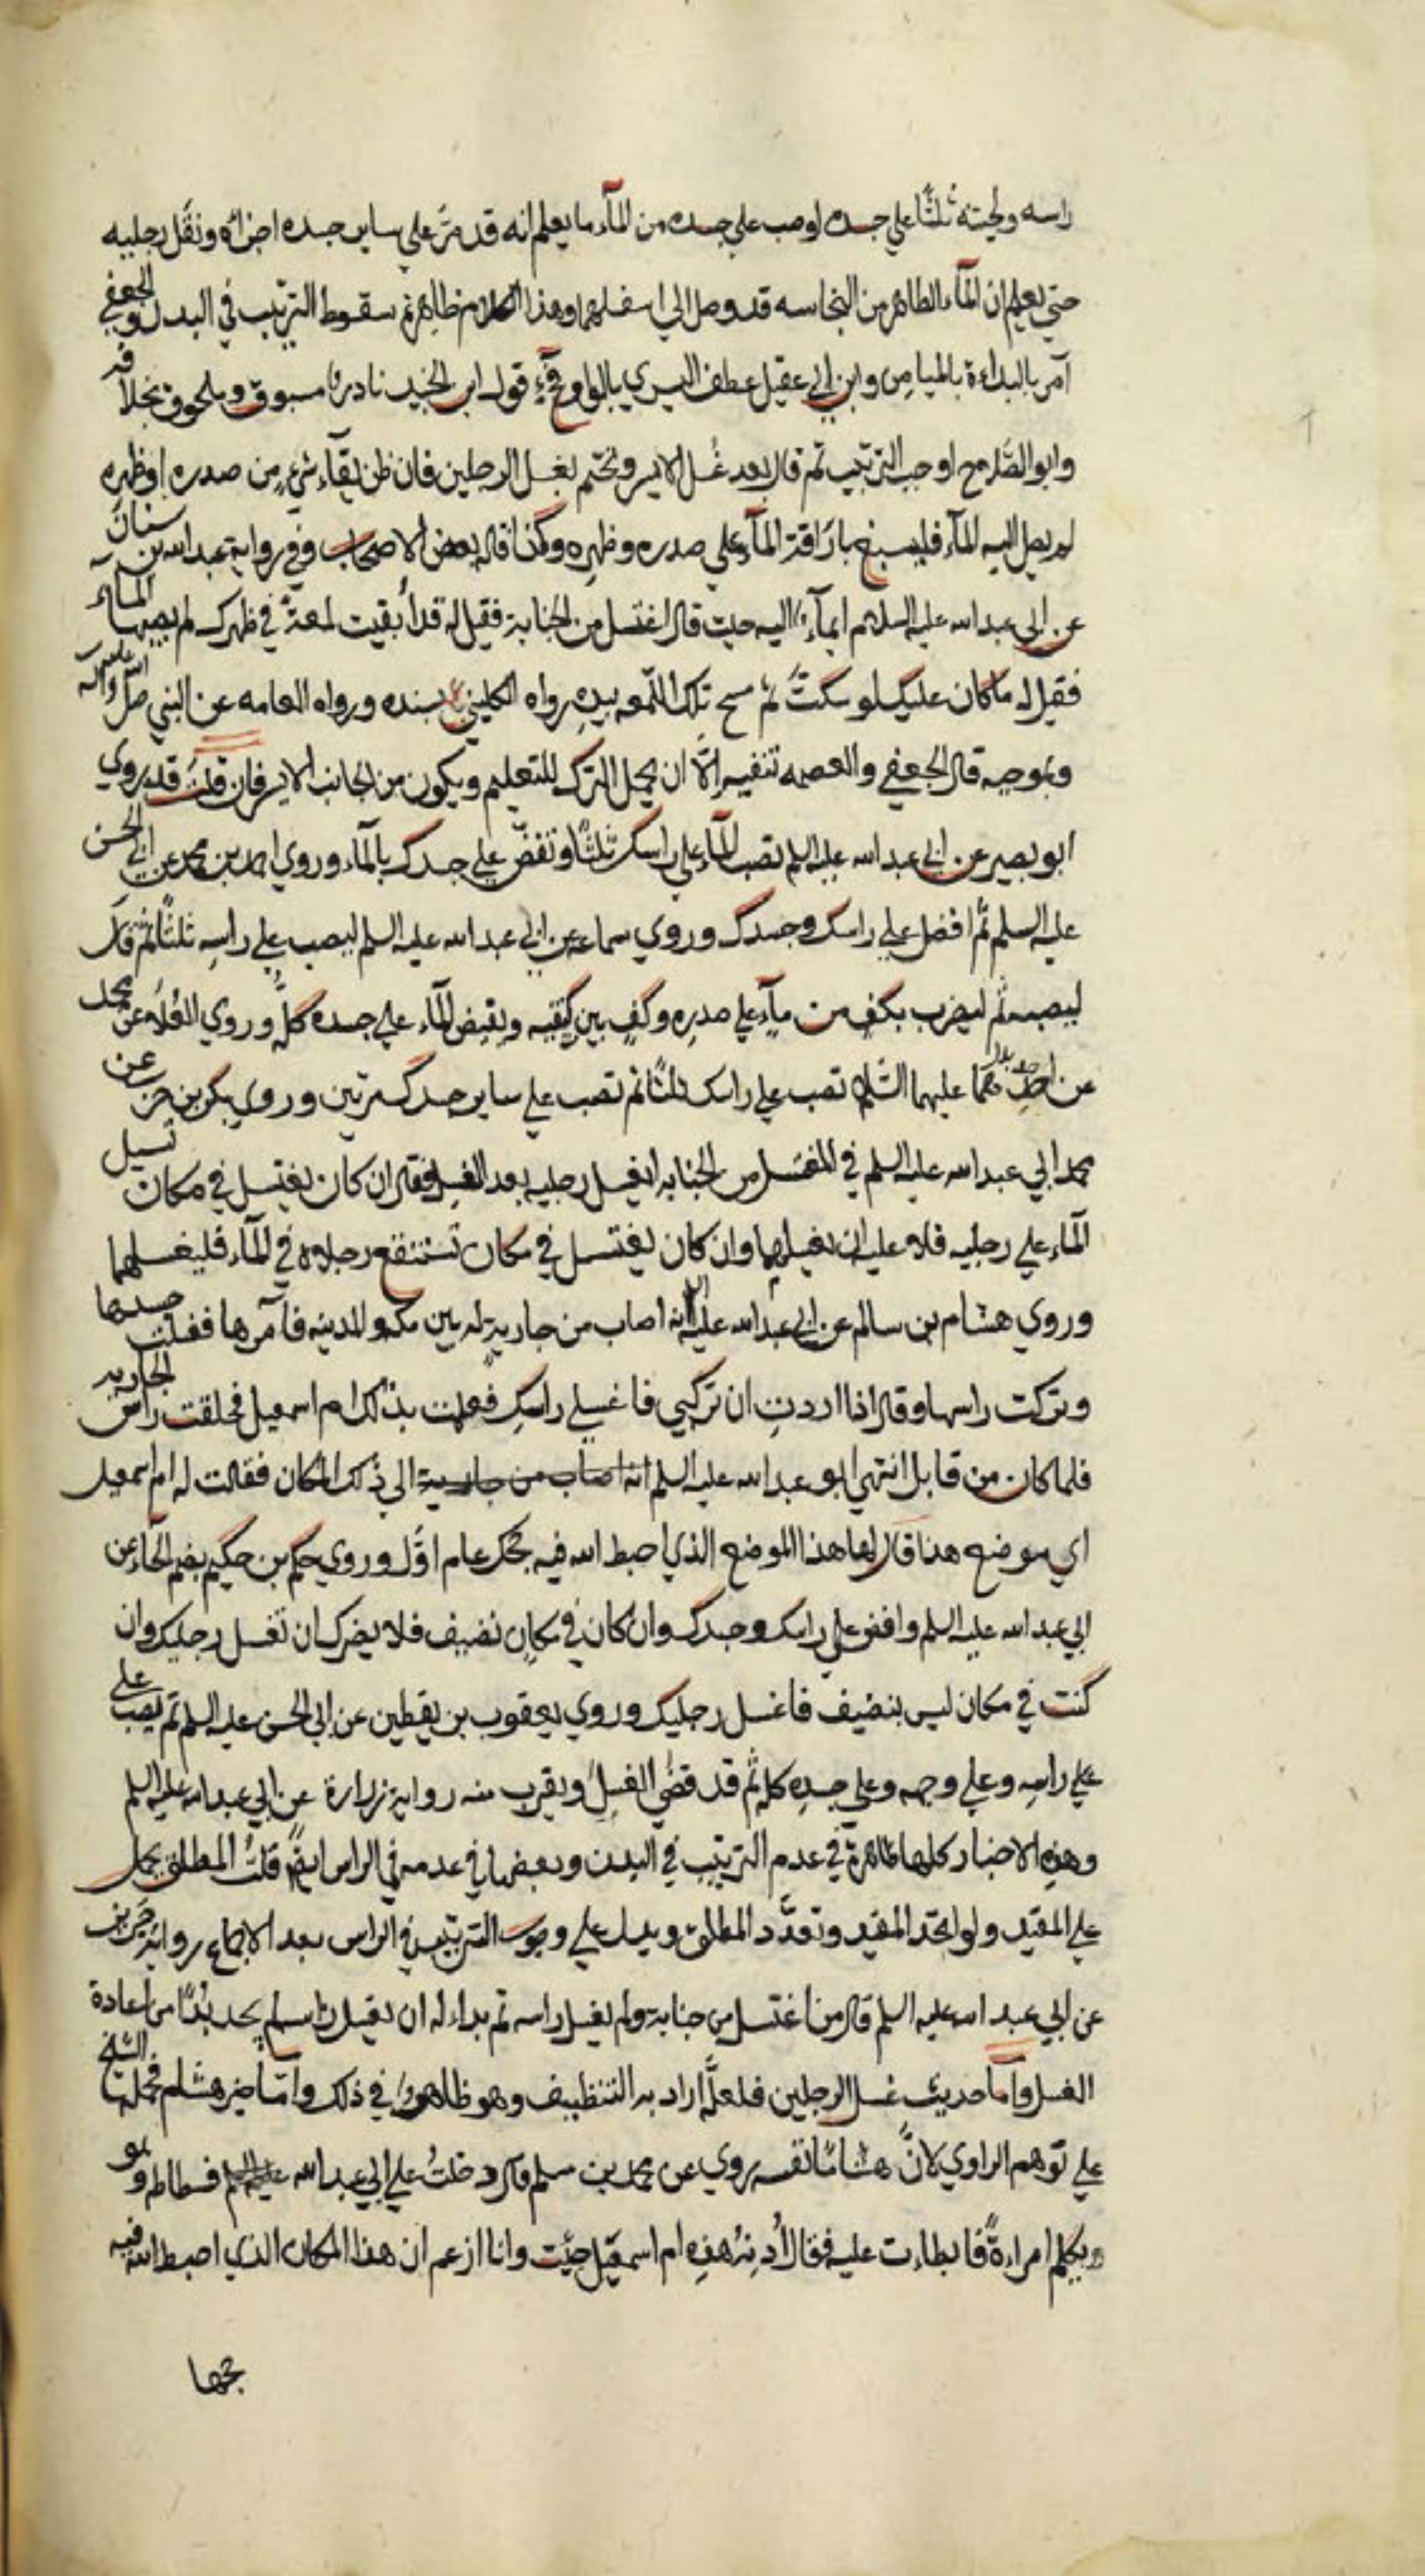 راسه ولحيته ثلثًا علي جسده او صب علي جسده من المآء ما يعلم انه قد مرّ علي ساير جسده اجزائه ونقل رجليه
حتي يعلم ان المآء الطاهر من النجاسه قد وصل الي اسفلهما وهذا الكلام ظاهر في سقوط الترتيب في البدن والجعفي
آمر بالبداءة بالميامن وابن ابي عقيل عطف اليسري بالواو فجآء قول ابن الجنيد نادرا مسبوق وملحوق بخلافه
وابو الصّلاح اوجب الترتيب ثم قال بعد غسل الايسر ويختم بغسل الرجلين فان ظن بقآء شيء من صدره او ظهره
لم يصل اليه المآء فليسبغ باراقة المآء علي صدره وظهره وكذا قاله بعض الاصحاب وفي رواية عبد الله بن سنان
عن ابي عبد الله عليه السلام ايمآء اليه حيث قال اغتسل من الجنابة فقيل له قد أبقيت لمعة في ظهرك لم يصبها المآء
فقيل له ما كان عليك لو سكتَّ ثم مسح تلك اللّمعه بيده رواه الكليني بسنده ورواه العامه عن النبي صلي الله عليه وآله
وبموجبه قال الجعفي والعصمه تنفيه الّا ان يحمل الترك للتعليم ويكون من الجانب الايسر فان قلت قد روي
ابو بصير عن ابي عبد الله عليه السلم تصب المآء علي راسك ثلثًا وتفض علي جسدك بالمآء وروي احمد بن محمد عن ابي الحسن
عليه السلم ثم افضل علي راسك وجسدك وروي سماعه عن ابي عبد الله عليه السلم ليصب علي راسه ثلثًا ثم قال
ليصب ثم ليضرب بكف من مآء علي صدره وكف بين كتفيه ويفيض المآء علي جسده كلّه وروي العلاء عن محمد
عن احدهما عليهما السّلام تصب علي راسك ثلثًا ثم تصب علي ساير جسدك مرتين وروي بكر بن كرب عن
محمد ابي عبد الله عليه السلم في المغتسل من الجنابه ايغسل رجليه بعد الغسل فقال ان كان يغتسل في مكان تسيل
المآء علي رجليه فلا عليه ان يغسلهما وان كان يغتسل في مكان تستنقع رجلاه في المآء فليغسلهما
وروي هشام بن سالم عن ابي عبد الله عليه السلم انه اصاب من جارية له بين مكه والمدينه فأمرها فغسلت جسدها
وتركت راسها وقال اذا اردتِ ان تركبي فاغسلي راسكِ فعلمت بذلك ام اسمعيل فحلقت راس الجاريه
فلما كان من قابل انتهي ابو عبد الله عليه السلم انه اصاب من جارية الي ذلك المكان فقالت له ام اسمعيل
اي موضع هذا قال لها هذا الموضع الذي احبط الله فيه حجك عام اوّل وروي حكم بن حكيم بضم الحآء عن
ابي عبد الله عليه السلم وافض علي راسك وجسدك وان كان في مكان نضيف فلا يضرك ان تغسل رجليك وان
كنت في مكان ليس بنضيف فاغسل رجليك وروي يعقوب بن يقطين عن ابي الحسن عليه السلم ثم يصب علي
علي راسه وعلي وجهه وعلي جسده كله ثم قد قضي الغسل ويقرب منه رواية زرارة عن ابي عبد الله عليه السلم
وهذه الاخبار كلها ظاهرة في عدم الترتيب في البدن وبعضها في عدمه في الراس ايضًا قلتُ المطلق يحمل
علي المقيد ولو اتحد المقيد وتعدّد المطلق ويدل علي وجوب الترتيب في الراس بعد الاجماع رواية حريز
عن ابي عبد الله عليه السلم قال من اغتسل من جنابة ولم يغسل راسه ثم بداء له ان يغسل راسه لم يجد بُدًّا من اعادة
الغسل وامّا حديث غسل الرجلين فلعلّه اراد به التنظيف وهو ظاهر في ذلك وامّا خبر هشام فحمله الشيخ
علي توهم الراوي لانّ هشامًا نفسه روي عن محمد بن مسلم قال دخلتُ علي ابي عبد الله عليه السلم فسطاطه وهو
ويكلم امراءةً فابطاءت عليه فقال أُدنه هذه ام اسمعيل جئت وانا ازعم ان هذا المكان الذي احبط الله فيه
حجها